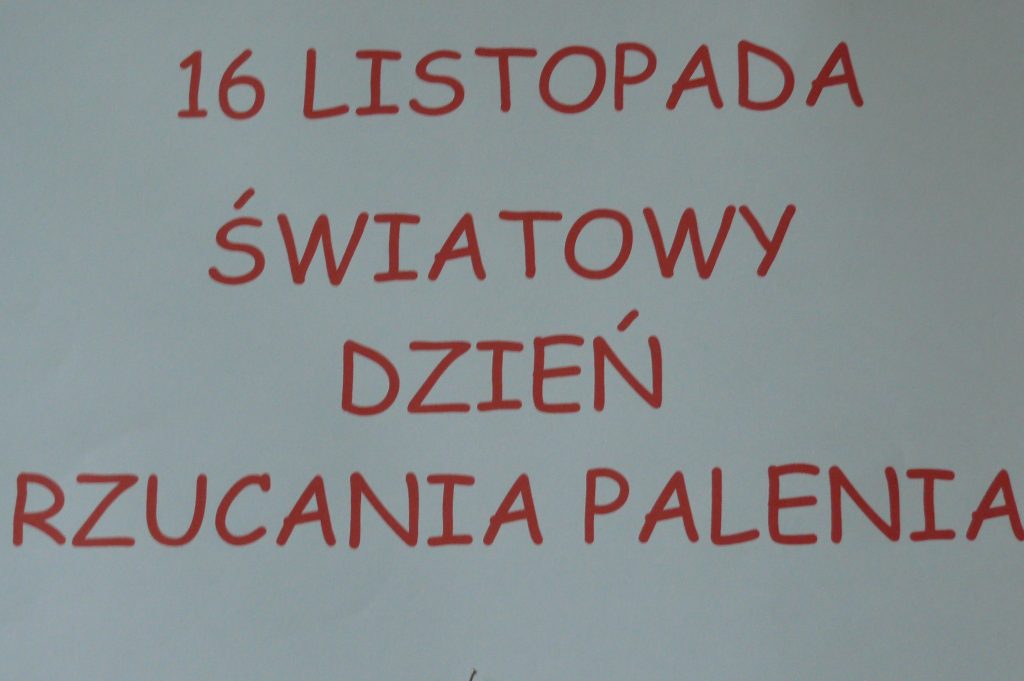 16 LISTOPADA
ŚWIATOWY
DZIEŃ
RZUCANIA PALENIA